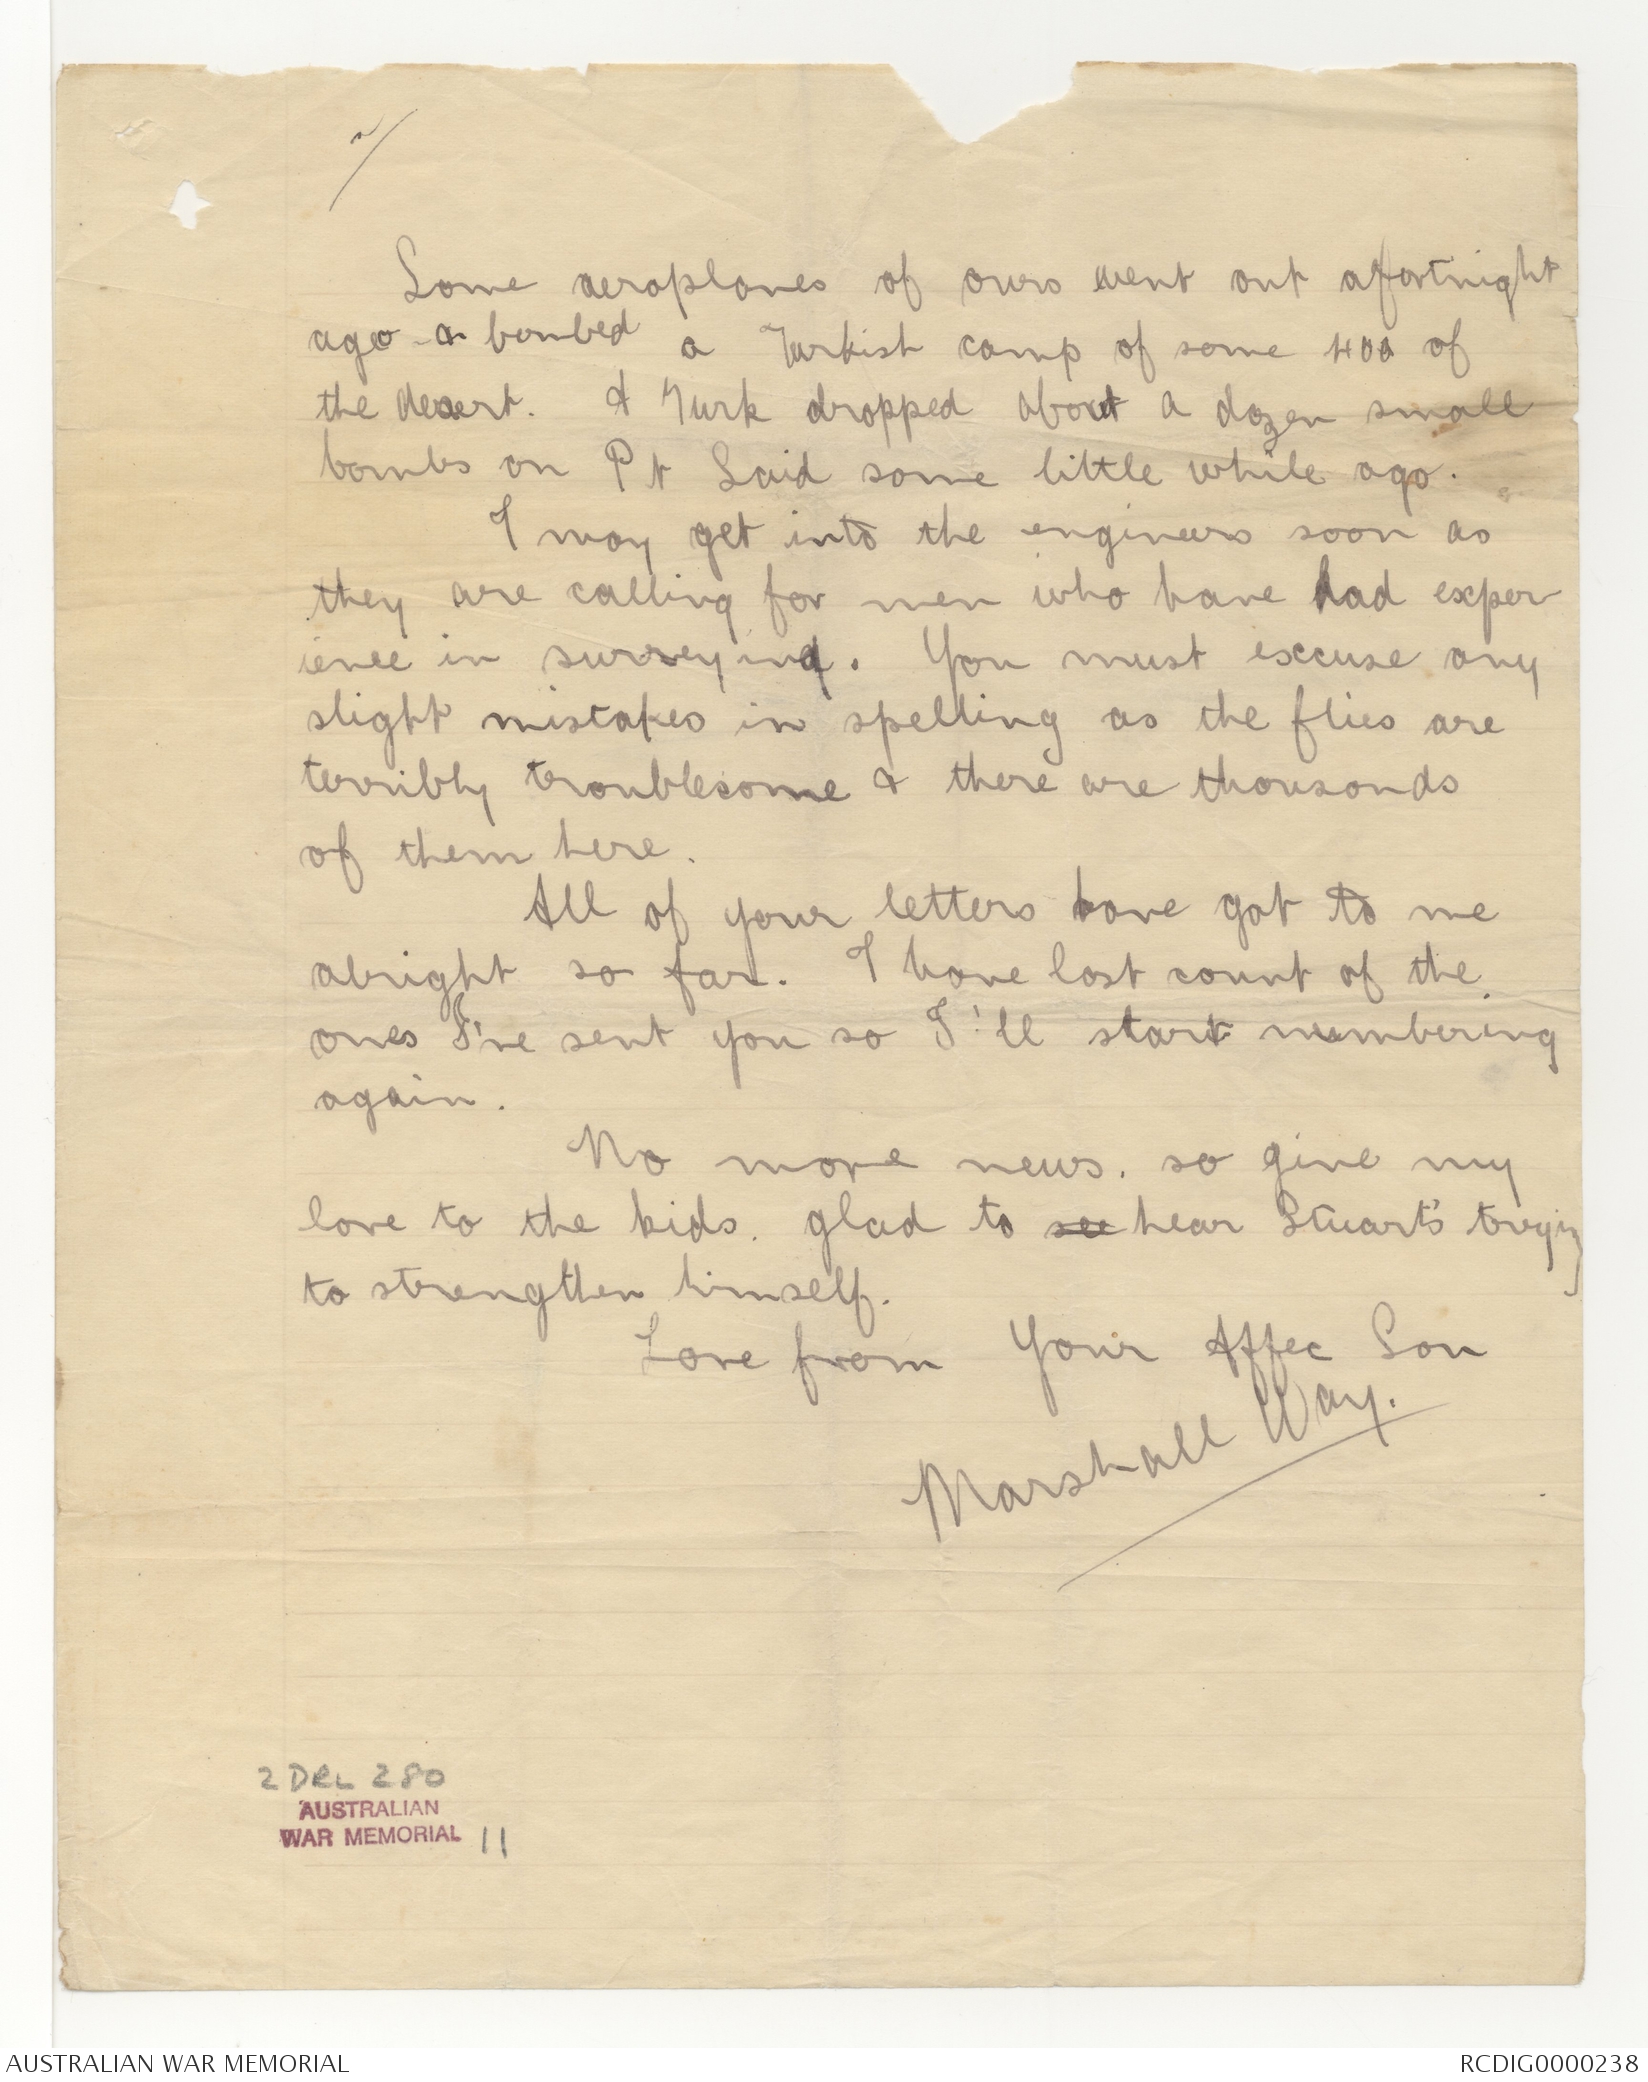 2/
Some aeroplanes of ours went out a fortnight
ago & bombed a Turkish camp of some 400 of
the desert. A Turk dropped about a dozen small
bombs on Pt Said some little while ago.
I may get into the engineers soon as
they are calling for men who have had exper
ience in surveying. You must excuse any
slight mistakes in spelling as the flies are
terribly troublesome & there are thousands
of them here.
All of your letters have got to me
alright so far. I have lost count of the
ones I've sent you so I'll start numbering
again.
No more news. so give my
love to the kids. glad to see hear Stuart's trying
to strengthen himself.
Love from Your Affec Son
Marshall Way.
2 DRL 280
AUSTRALIAN
WAR MEMORIAL 11
AUSTRALIAN WAR MEMORIAL
RCDIG0000238